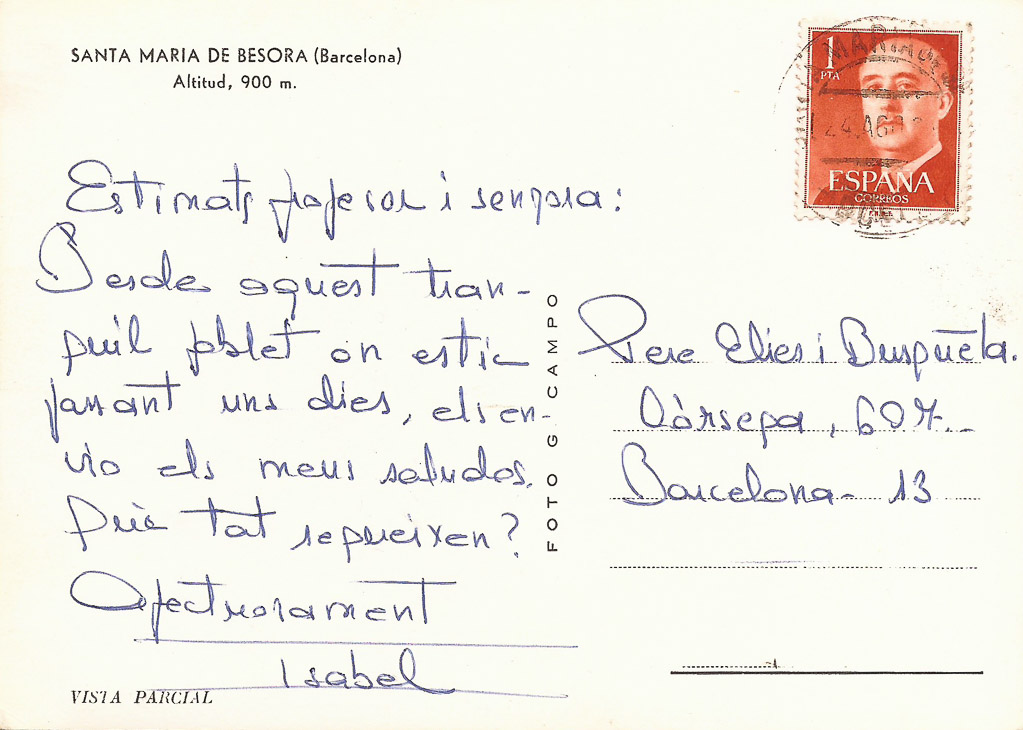 SANTA MARIA DE BESORA (Barcelona)
Altitud, 900 m.
1
PTA
ESPAÑA
CORREOS
F.N.M.T.
Estimats profesor i senyora:
Desde aquest tran-
quil poblet on estic
passant uns dies, els en-
vio els meus saludos.
Quic tat segueixen?
Afectuosament
Isabel
VISTA PARCIAL
FOTO G. CAMPO
Pere Elies i Busqueta.
Còrsega, 607.
Barcelona - 13